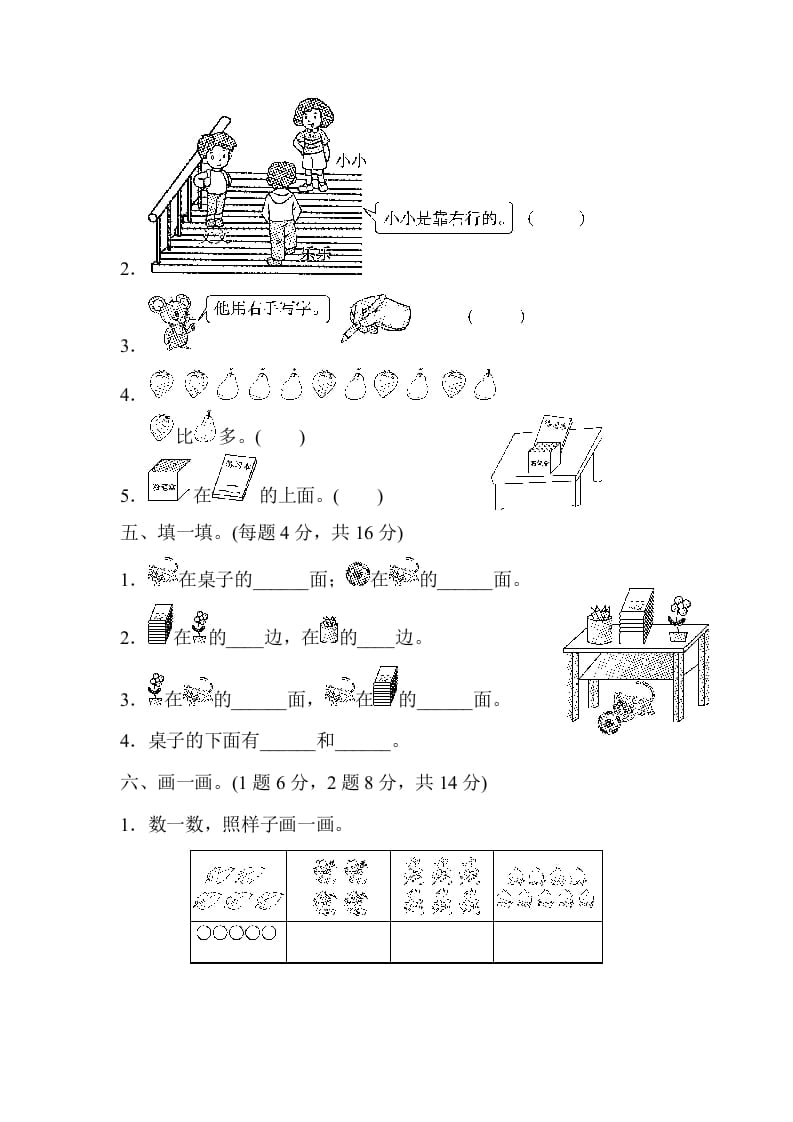 小小
小小是靠右行的。 (  )
乐乐
2.
他用右手写字。 (  )
3.
4.
比 多。(  )
5. 在 的上面。(  )
练习本
五、填一填。(每题4分，共16分)
1. 在桌子的______面； 在 的______面。
2. 在 的____边，在 的____边。
3. 在 的______面， 在 的______面。
4．桌子的下面有______和______。
六、画一画。(1题6分，2题8分，共14分)
1．数一数，照样子画一画。
○○○○○